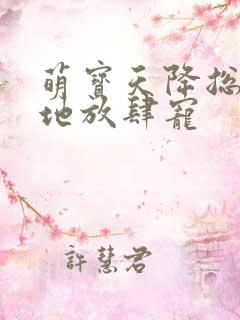 萌寶天降捴
地放肆寵
許慧君